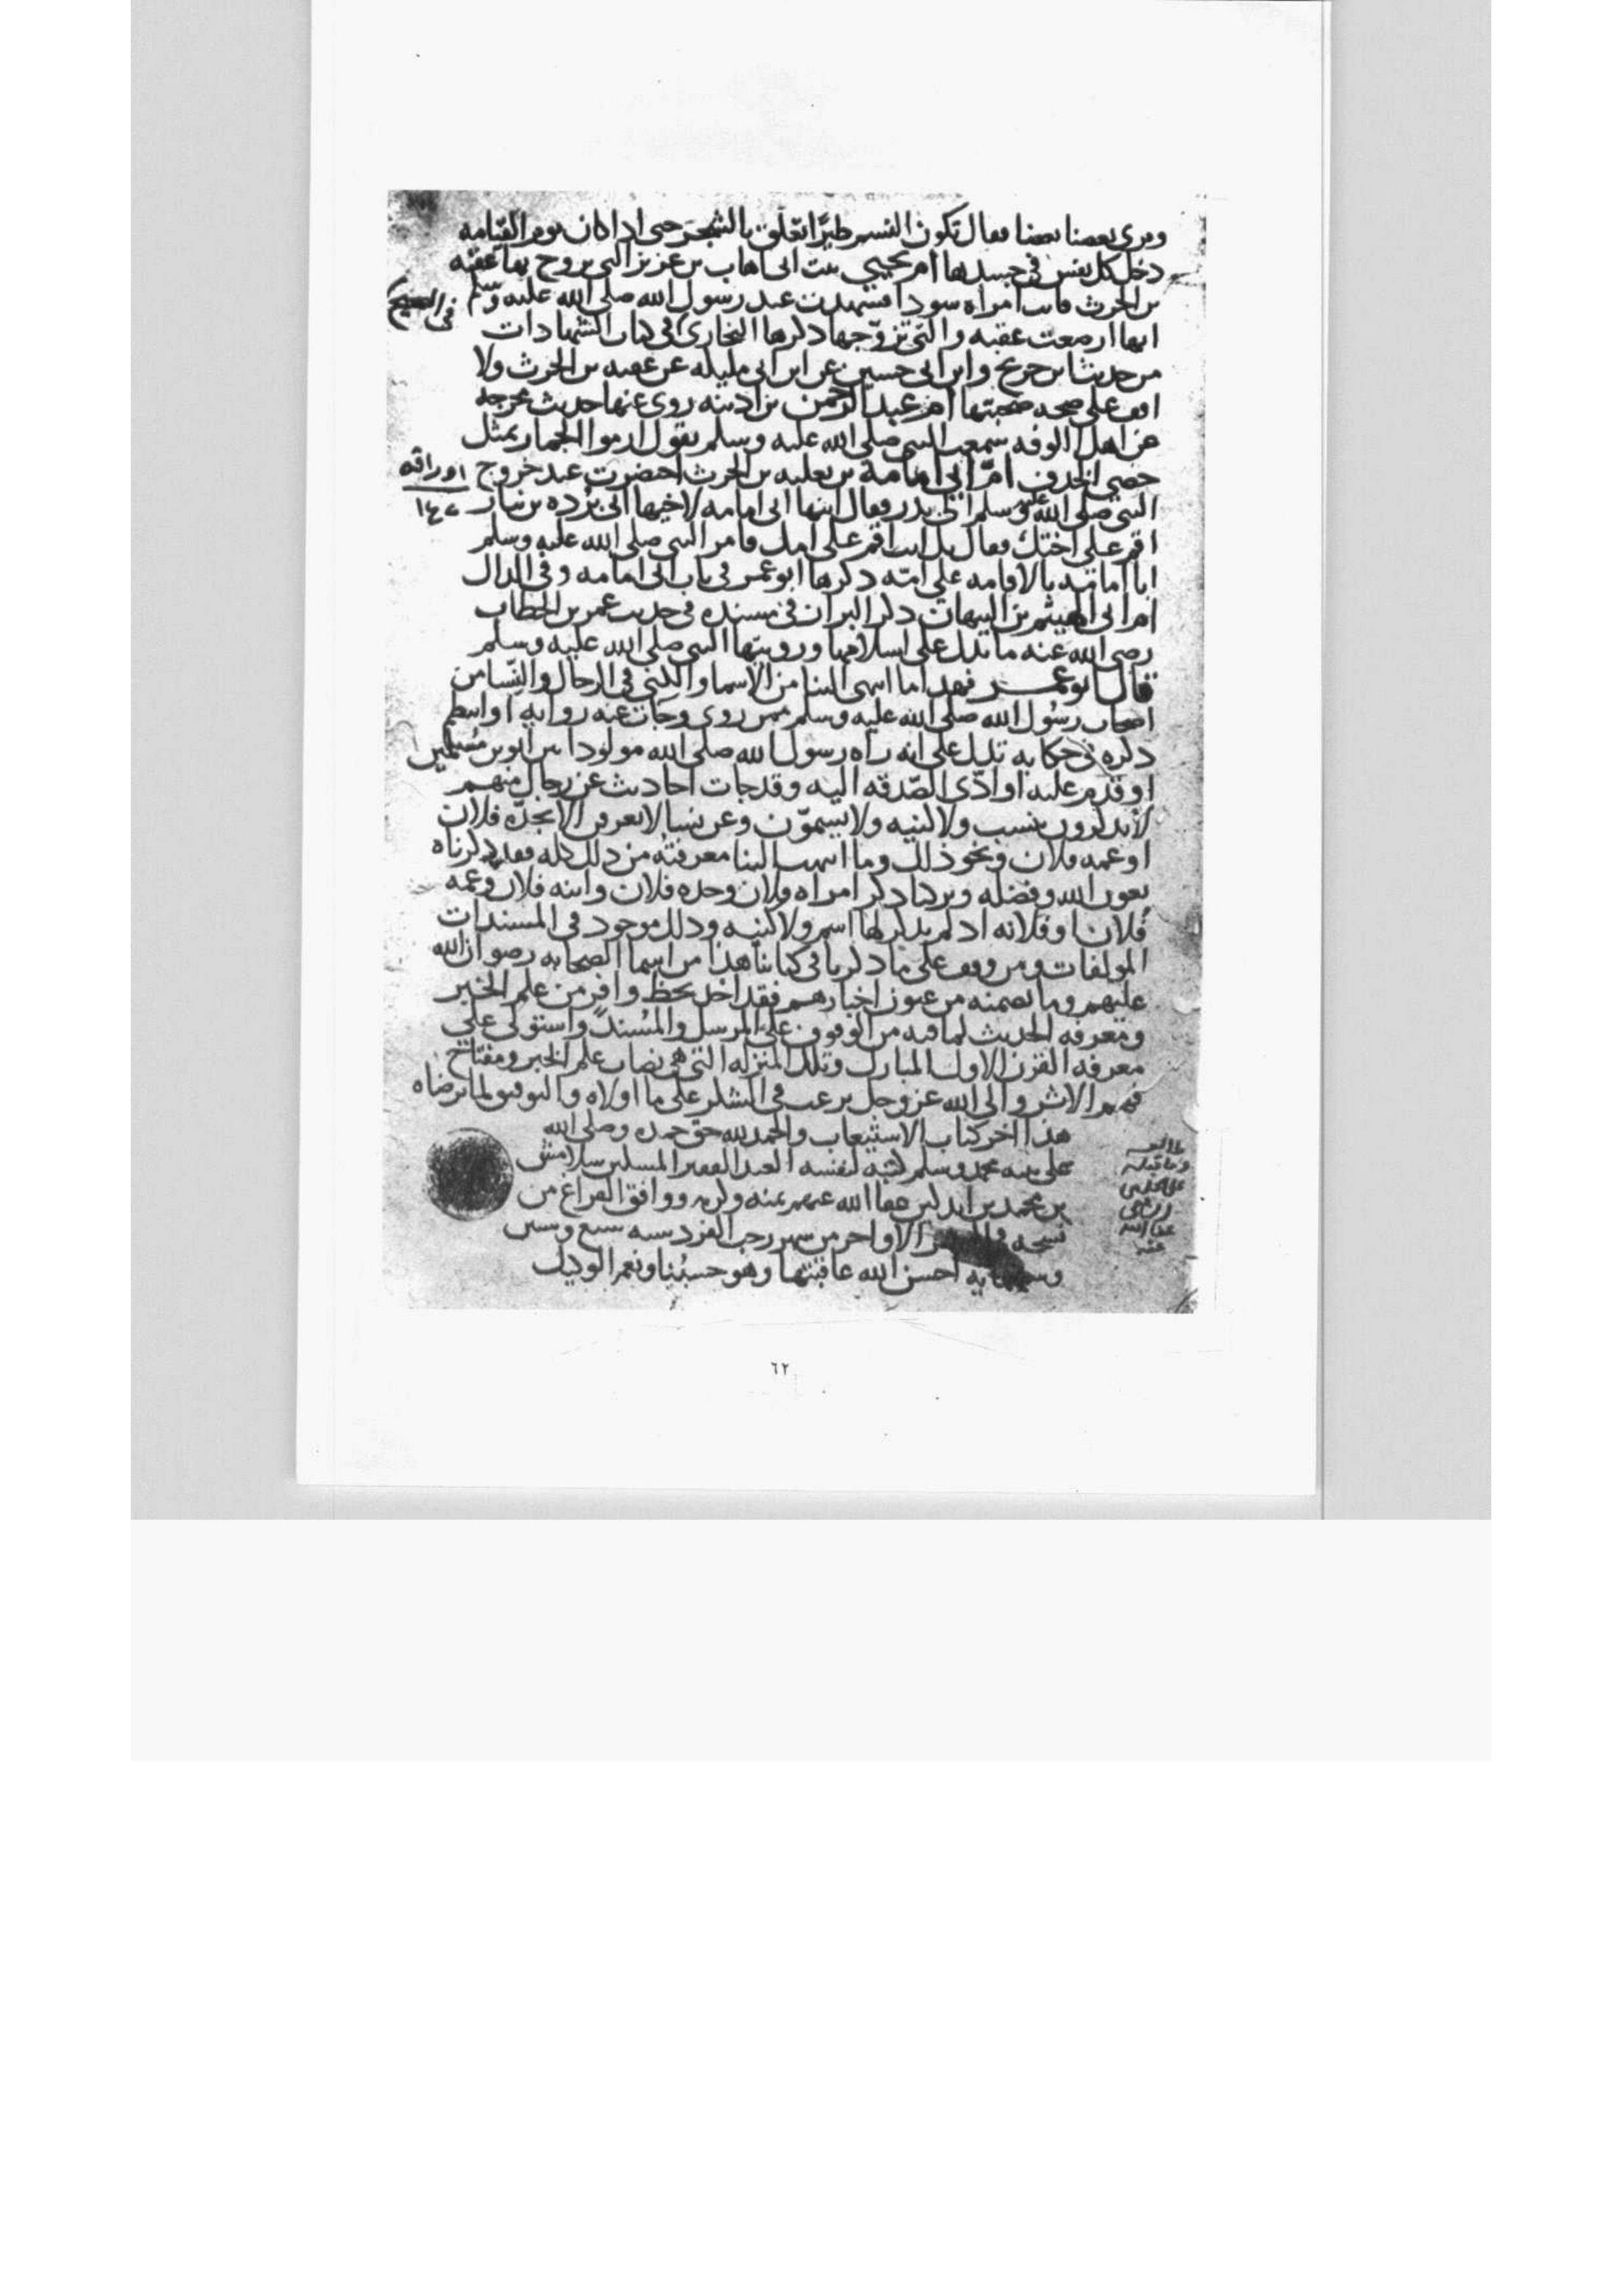 ويرى بعضنا بعضنا فقال تكون النسم طيرًا تعلق بالشجر حتى اذا كان يوم القيامه
دخل كل نفس في جسدها ام يحيى بنت ابى اهاب بن عزيز التى تزوج بها عقبه
بن الحرث فاتت امراه سودا فشهدت عند رسول الله صلى الله عليه وسلم
في الصحيح
انها ارضعت عقبه والتي تزوّجها ذكرها البخارى في كتاب الشهادات
من حديث ابن جريج وابن ابى حسين عن ابن ابى مليكه عن عقبه بن الحرث ولا
اقف على صحه صحبتها ام عبد الرحمن بن اذينه روى عنها حديث مخرجه
عن اهل الكوفه سمعت النبي صلى الله عليه وسلم يقول ارموا الجمار بمثل
حصى الخذف امّ ابي امامة بن ثعلبه بن الحرث احضرت عند خروج
اوراقه
النبي صلى الله عليه وسلم الى بدر فقال ابنها ابى امامه لاخيها ابى بُرده بن نيار
اقم على اختك فقال بل انت اقم على امك فامر النبي صلى الله عليه وسلم
ابا امامه بالاقامه على امّه ذكرها ابو عمر في باب ابى امامه وفى الدال
ام ابى الهيثم بن التيهان ذكر البزار في مسنده في حديث عمر بن الخطاب
رضى الله عنه ما يدل على اسلامها ورويتها النبي صلى الله عليه وسلم
قال ابو عمر فهذا ما انتهى الينا من الاسما والكنى في الرجال والنّسا من
اصحاب رسُول الله صلى الله عليه وسلم ممن روى وجات عنه روايه او انتظم
ذكره في حكايه تدل على انه راه رسول الله صلى الله مولودا بين ابوين مُسلمين
او قدم عليه او ادّى الصّدقه اليه وقد جات احاديث عن رجال منهم
لا يذكرون بنسب ولا كنيه ولا يسموّن وعن نسا لا تعرفن الا بجدّه فلان
او عمه فلان ونحو ذلك وما انتهت الينا معرفته من ذلك كله فقد ذكرناه
بعون الله وفضله وتركنا ذكر امراه فلان وجده فلان وابنه فلان وعمه
فلان او فلانه اذ لم يذكر لها اسم ولا كنيه وذلك موجود في المسندات
المولفات ومن وقف على ما ذكرنا في كتابنا هذا من اسما الصحابه رضوان الله
عليهم وما تضمنه من عيون اخبارهم فقد اخذ بحظ وافر من علم الخبر
ومعرفه الحديث لما فيه من الوقوف على المرسل والمُسند واستولى على
معرفه القرن الاول المبارك وتلك المنزله التي هى نصاب علم الخبر ومفتاح
فهم الاثر والى الله عز وجل نرغب في الشكر على ما اولاه والتوفيق لما يرضاه
هذا اخر كتاب الاستيعاب والحمد لله حق حمده وصلى الله
على نبيه محمد وسلم كتبه لنفسه العبد الفقير سلامش
بن محمد بن عفا الله عنهم بمنه وكرمه ووافق الفراغ من
نسخه الاواخر من شهر رجب الفرد سنه سبع وستين
وستمايه احسن الله عاقبتها وهو حسبُنا ونعم الوكيل
عفا الله
عنه
٦٢